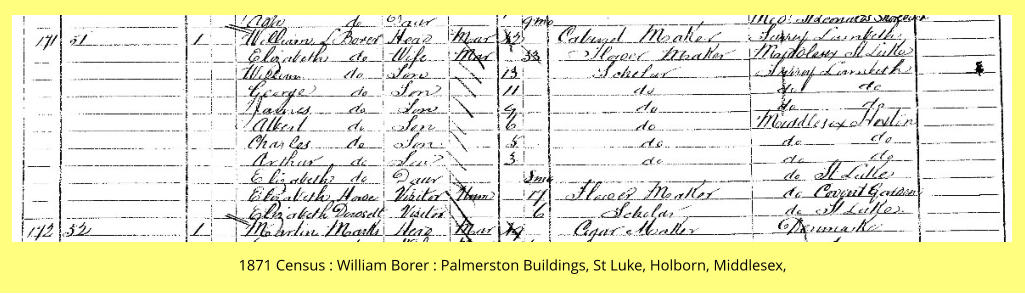 do Daur 9mo
171 51 1 William J Borer Head Mar Cabinet Maker Surrey Lambeth
Elizabeth do Wife Mar 33 Flower Maker Middlesex St Lukes
William do Son 13 Scholar Surrey Lambeth
George do Son 11 do do do
James do Son 9 do do do
Albert do Son 6 do Middlesex Hoxton
Charles do Son 5 do do do
Arthur do Son 3 do do do
Elizabeth do Daur 8mo do St Lukes
Elizabeth Visitor Unm 17 Flower Maker do Covent Garden
Elizabeth Visitor 6 Scholar do St Lukes
172 52 1 Martin Marks Head Mar Cigar Maker Denmark
1871 Census : William Borer : Palmerston Buildings, St Luke, Holborn, Middlesex,